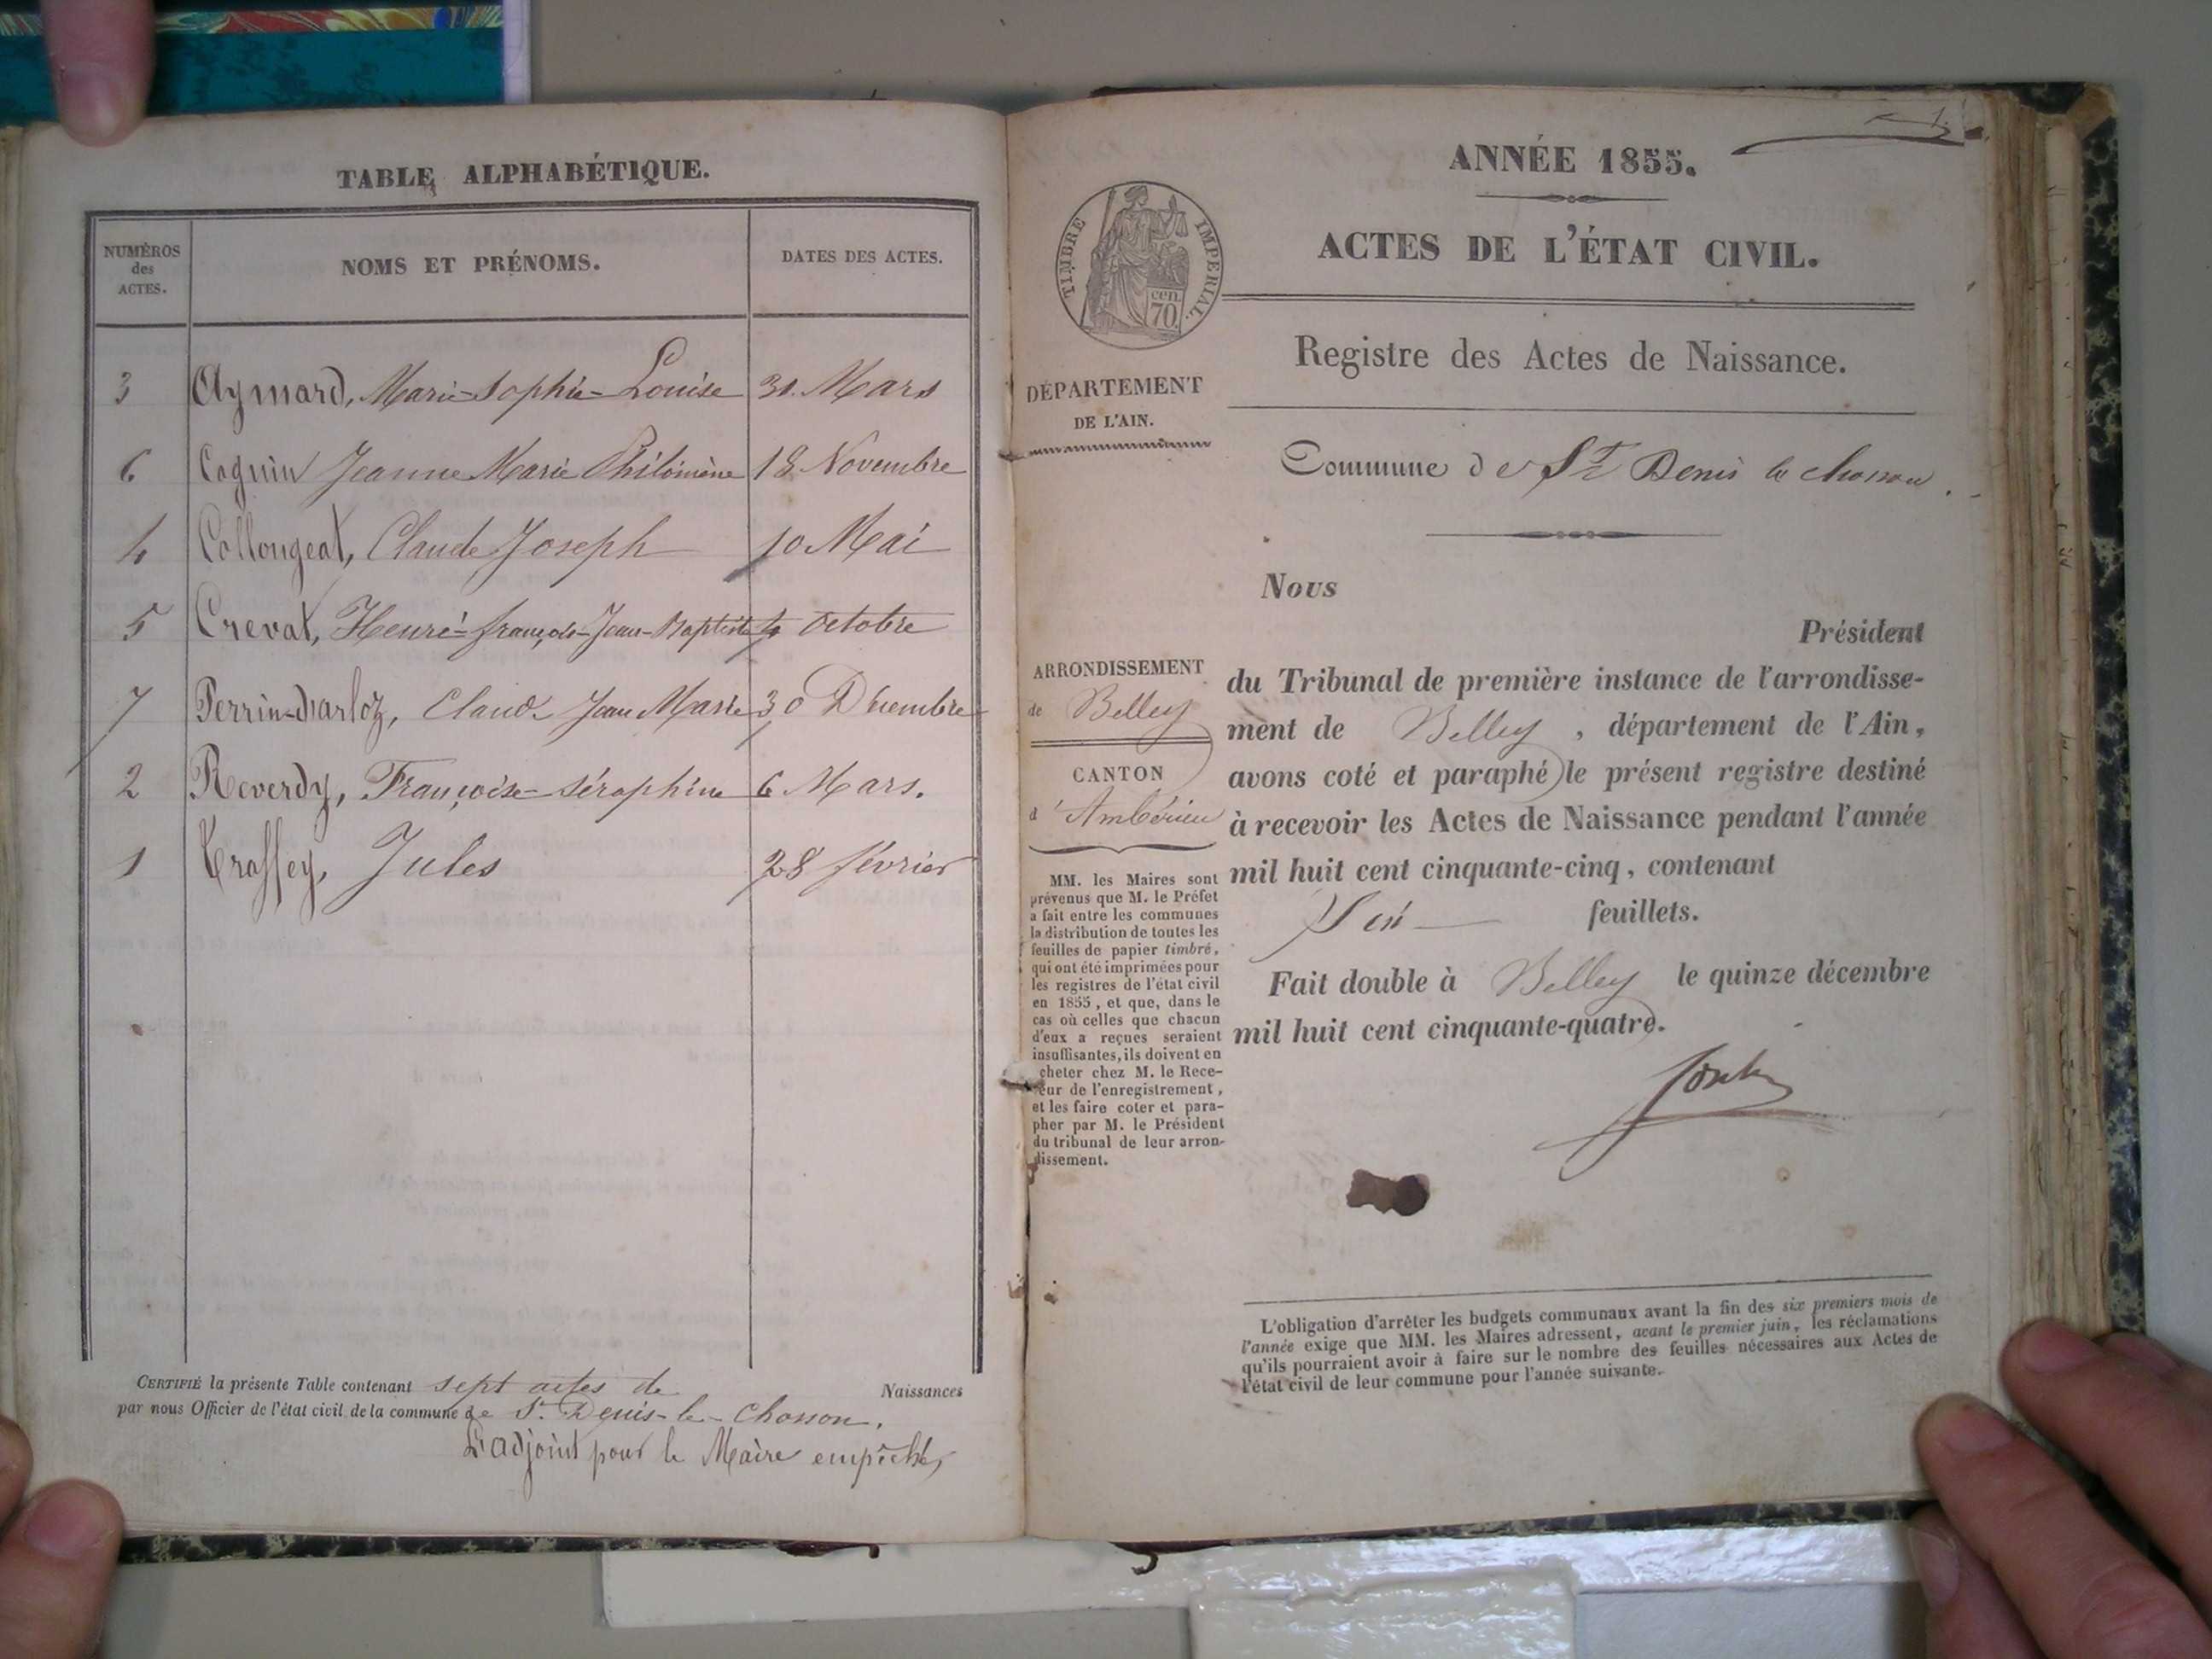 TABLE ALPHABÉTIQUE.
NUMÉROS
des
ACTES.
NOMS ET PRÉNOMS.
DATES DES ACTES.
3 Aymard, Marie-Sophie-Louise 31. Mars
6 Coguin Jeanne Marie Philomène 18 Novembre
4 Collougeat, Claude Joseph 10 Mai
5 Crevat, Henri-françois-Jean-Baptiste 4 Octobre
7 Perrin-Darloz, Claude Jean Marie 30 Décembre
2 Reverdy, Françoise-Séraphine 6 Mars.
1 Jules 28 février
CERTIFIÉ la présente Table contenant sept actes de Naissances
par nous Officier de l'état civil de la commune de St. Denis-le-Chosson.
L'adjoint pour le Maire empêché,
ANNÉE 1855.
ACTES DE L'ÉTAT CIVIL.
TIMBRE IMPERIAL.
cen.
70
Registre des Actes de Naissance.
DÉPARTEMENT
DE L'AIN.
Commune de St Denis le chosson.
Nous
Président
du Tribunal de première instance de l'arrondisse-
ment de Belley, département de l'Ain,
avons coté et paraphé le présent registre destiné
à recevoir les Actes de Naissance pendant l'année
mil huit cent cinquante-cinq, contenant
Six feuillets.
Fait double à Belley le quinze décembre
mil huit cent cinquante-quatre.
ARRONDISSEMENT
de Belley
CANTON
d'Ambérieu
MM. les Maires sont
prévenus que M. le Préfet
a fait entre les communes
la distribution de toutes les
feuilles de papier timbré,
qui ont été imprimées pour
les registres de l'état civil
en 1855, et que, dans le
cas où celles que chacun
d'eux a reçues seraient
insuffisantes, ils doivent en
cheter chez M. le Rece-
eur de l'enregistrement,
et les faire coter et para-
pher par M. le Président
du tribunal de leur arron-
dissement.
L'obligation d'arrêter les budgets communaux avant la fin des six premiers mois de
l'année exige que MM. les Maires adressent, avant le premier juin, les réclamations
qu'ils pourraient avoir à faire sur le nombre des feuilles nécessaires aux Actes de
l'état civil de leur commune pour l'année suivante.